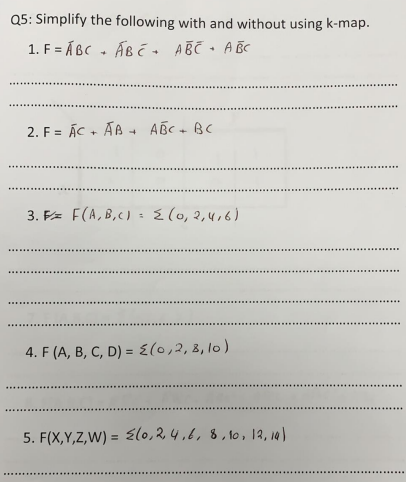 Q5: Simplify the following with and without using k-map.
1. F = ĀBC + ĀBC̄ + AB̄C̄ + AB̄C
2. F = ĀC + ĀB + AB̄C + BC
3. F(A,B,C) = Σ(0,2,4,6)
4. F (A, B, C, D) = Σ(0,2,8,10)
5. F(X,Y,Z,W) = Σ(0,2,4,6,8,10,12,14)